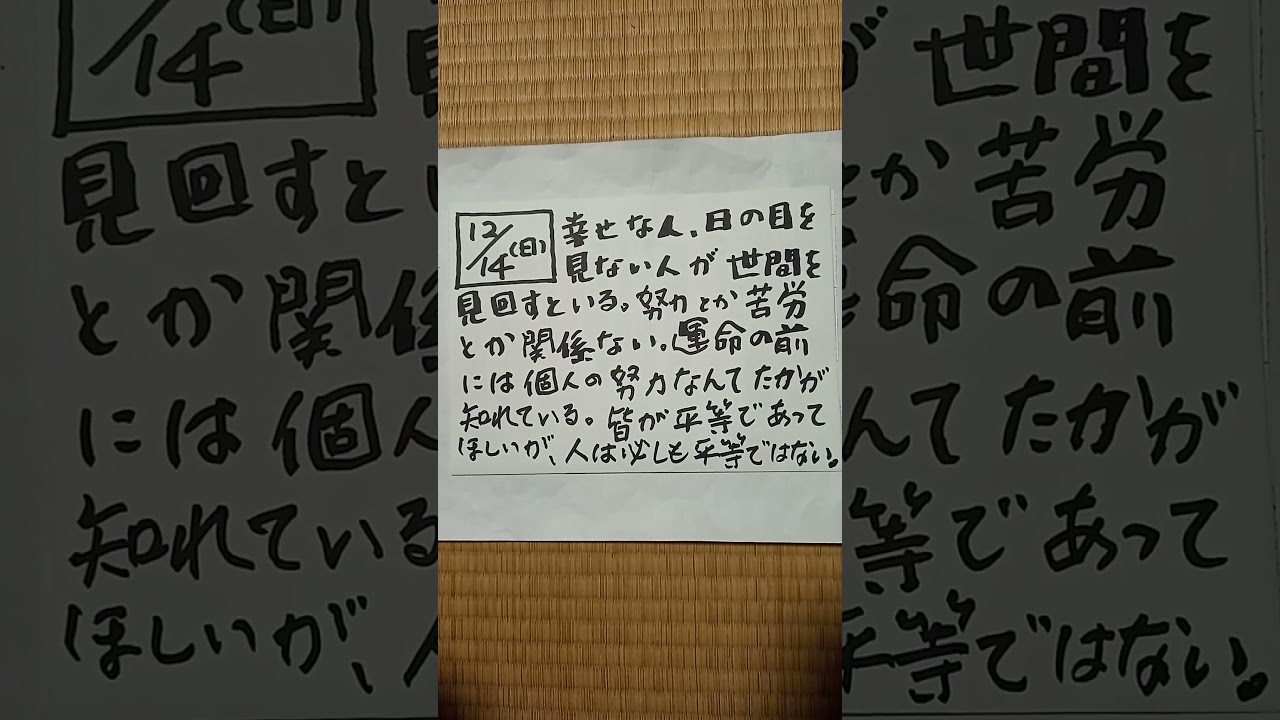 12/14(日)
幸せな人、日の目を
見ない人が世間を
見回すといる。努力とか苦労
とか関係ない。運命の前
には個人の努力なんてたかが
知れている。皆が平等であって
ほしいが、人は必しも平等ではない。